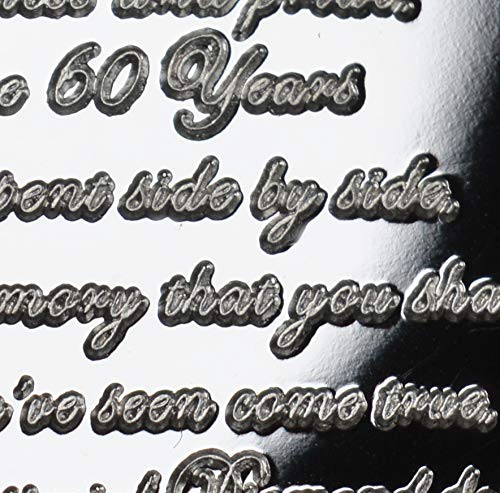 e 60 Years
pent side by side,
mory that you sha
've seen come true,